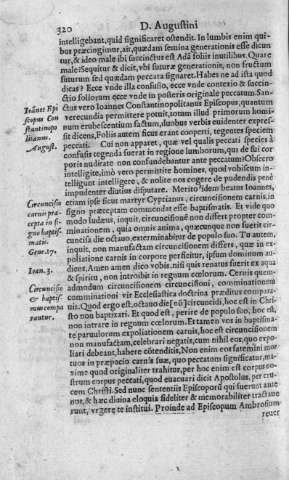 320
D. Augustini
intelligebant, quid significaret ostendit. In lumbis enim qui-
bus præcingimur, air, quædam semina generationis esse dicun
tur, & ideo male ibi sanctius est Ada folijs inutilibus. Quare
male? Sequitur & dicit, vbi futuræ generationis, non fructum
futurum sed quædam peccata signaret. Habes ne ad ista quod
dicas? Ecce vnde illa confusio, ecce vnde contextio & succin
ctio foliorum ecce vnde in posteris originale peccatum. San
ctus vero Ioannes Constantinopolitanus Episcopus, quantum
verecundia permittere potuit, totam illud primorum homi-
num erubescentium factum, duobus verbis euidenter expres-
sit dicens, Foliis autem ficus erant cooperti, tegentes speciem
peccati. Cui non apparet, quæ vel qualis peccati species à
confusis tegenda fuerat in regione lumborum, de qua sui cor
poris nuditate non confundebantur ante peccatum? Obsecro
intelligite, imò vero permittite homines, quod vobiscum in-
telligunt intelligere, & nolite nos cogere de pudendis pene
impudenter diutius disputare. Merito idem beatus Ioannes,
etiam ipse sicut martyr Cyprianus, circuncisionem carnis, in
signo præceptam commendat esse baptismatis. Et vide quo
modo Iudæus, inquit, circuncisionē non differt propter com
minationem, quia omnis anima, quæcunque non fuerit cir-
cuncisa die octauo, exterminabitur de populo suo. Tu autem,
inquit, non manufactam circuncisionem differs, quæ in ex-
poliatione carnis in corpore perficitur, ipsum dominum au
diens, Amen amen dico vobis, nisi quis renatus fuerit ex aqua
& spiritu, non introibit in regnum cœlorum. Cernis quem-
admodum circuncisionem circuncisioni, comminationem
comminationi vir Ecclesiastica doctrina præditus comparauit.
Quod ergo est, octauo die non circuncidi, hoc est in Chri-
sto non baptizari. Et quod est, perire de populo suo, hoc est,
non intrare in regnum cœlorum. Et tamen vos in baptisma-
te paruulorum expoliationem carnis, hoc est circuncisionem
non manufactam, celebrari negatis, cum nihil eos, quo expo-
liari debeant, habere contenditis. Non enim eos fatemini mor
tuos in præpucio carnis suæ, quo peccatum significatur, ma-
xime quod originaliter trahitur, per hoc enim est corpus no-
strum corpus peccati, quod euacuari dicit Apostolus, per cru-
cem Christi. Sed nunc sententiis Episcoporū qui fuerunt ante
nos, & hæc diuina eloquia fideliter & memorabiliter tractaue
runt, vrgere te institui. Proinde ad Episcopum Ambrosium
reuer
Ioānes Epi
scopus Con
stantinopo
litanus.
August.
Circuncisio
carnis præ
cepta in si-
gno baptis-
matis.
Gene. 17.
Ioan. 3.
Circuncisio
& baptis-
mus compa
rantur.